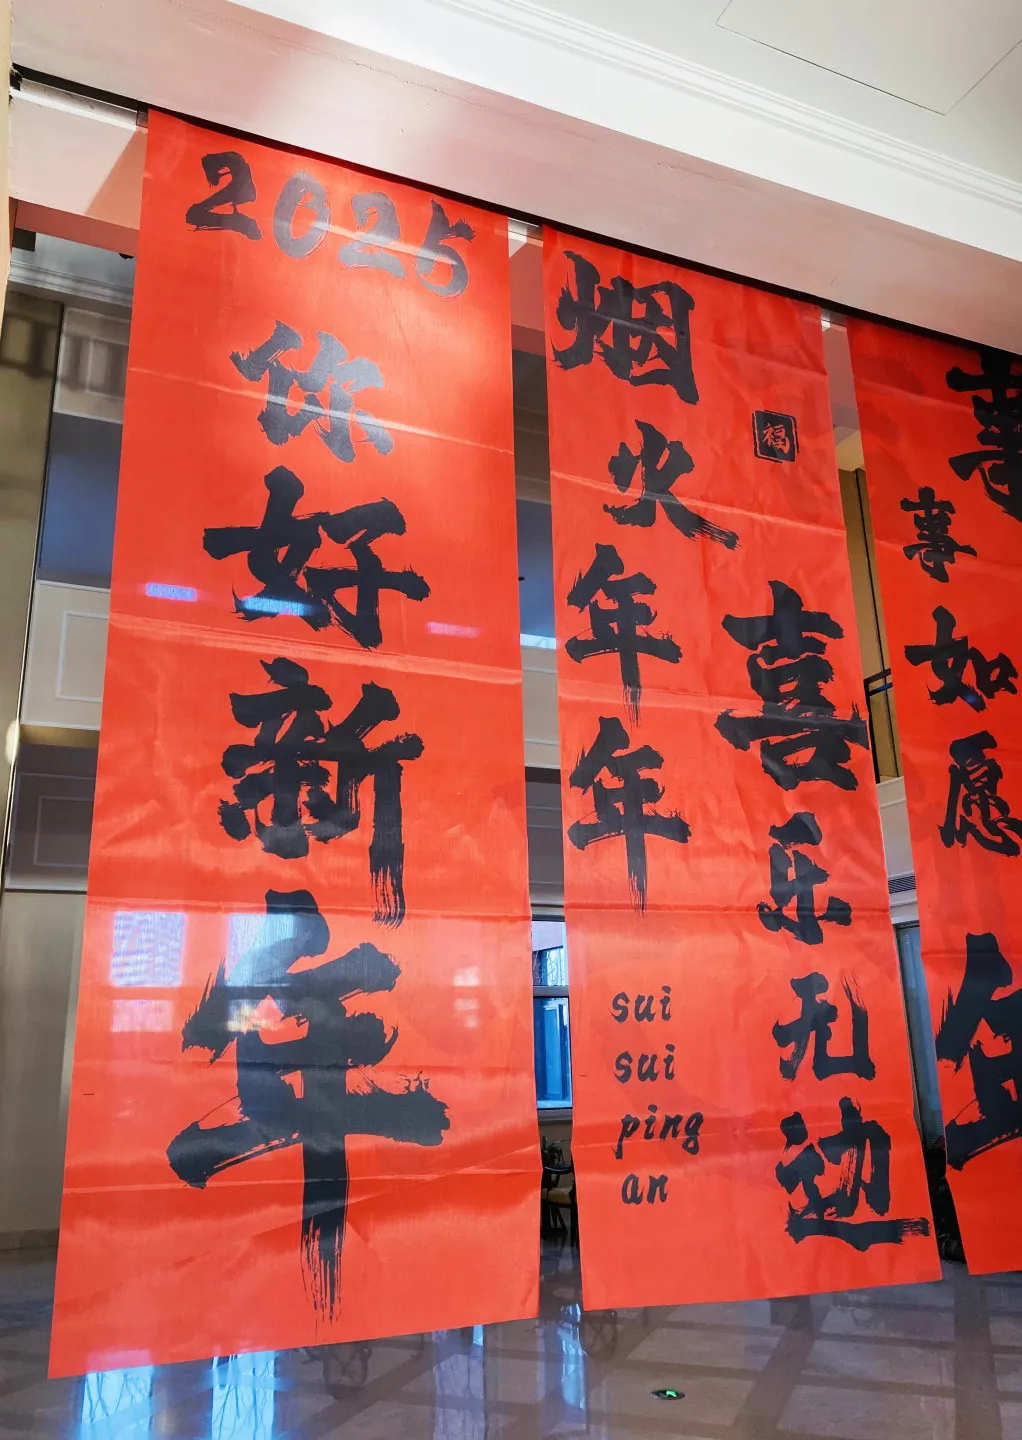 2025
你好新年
烟火年年
福
喜乐无边
sui
sui
ping
an
事如愿
年